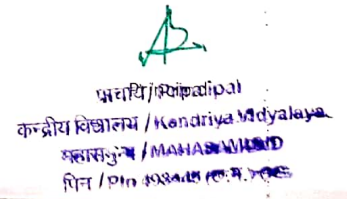 प्राचार्य / Principal
केन्द्रीय विद्यालय / Kendriya Vidyalaya
महासमुन्द / MAHASAMUND
पिन / Pin